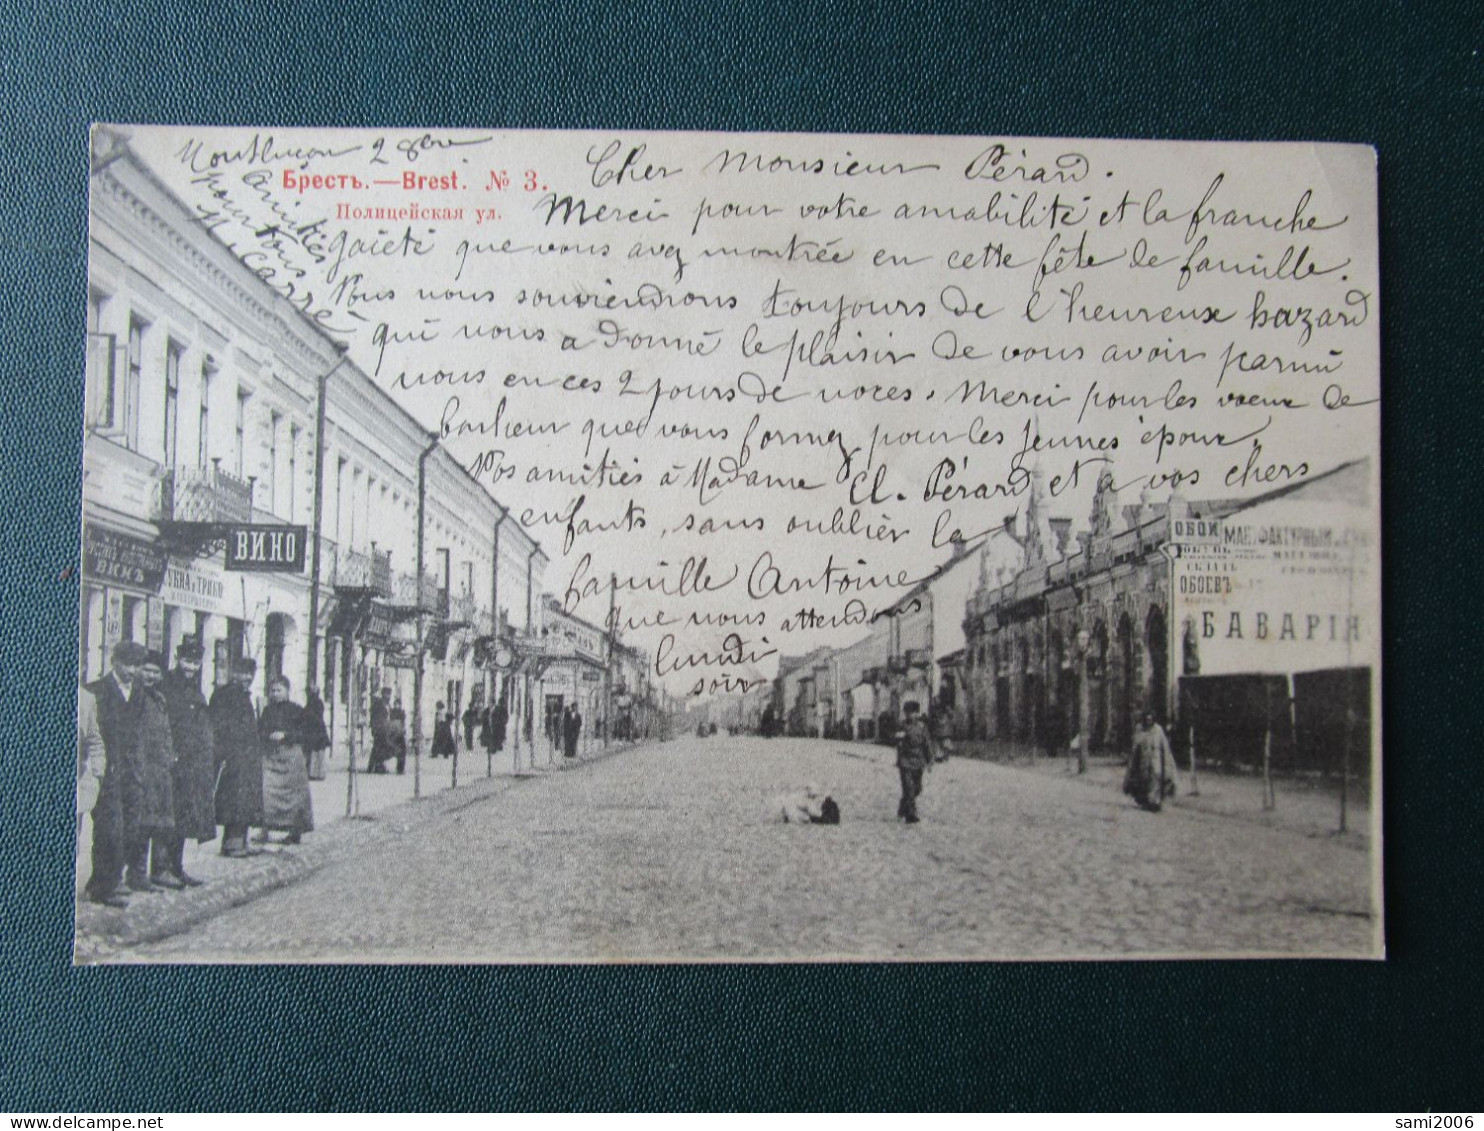 Montluçon 2 8bre
Cher Monsieur Pérard.
Брестъ.—Brest. № 3.
Полицейская ул.
Merci pour votre amabilité et la franche
gaieté que vous avez montrée en cette fête de famille.
Nous nous souviendrons toujours de l'heureux hazard
qui nous a donné le plaisir de vous avoir parmi
nous en ces 2 jours de noces. Merci pour les voeux de
bonheur que vous formez pour les jeunes époux.
Nos amitiés à Madame Cl. Pérard et à vos chers
enfants, sans oublier la
famille Antoine
que nous attendons
lundi
soir
Amitiés
pour tous
M. Carré
ВИНО
СУКНА И ТРИКО
ОБОИ
МАНУФАКТУРНЫЙ
СКЛАДЪ
ОБОЕВЪ
БАВАРІЯ
sami2006
delcampe.net